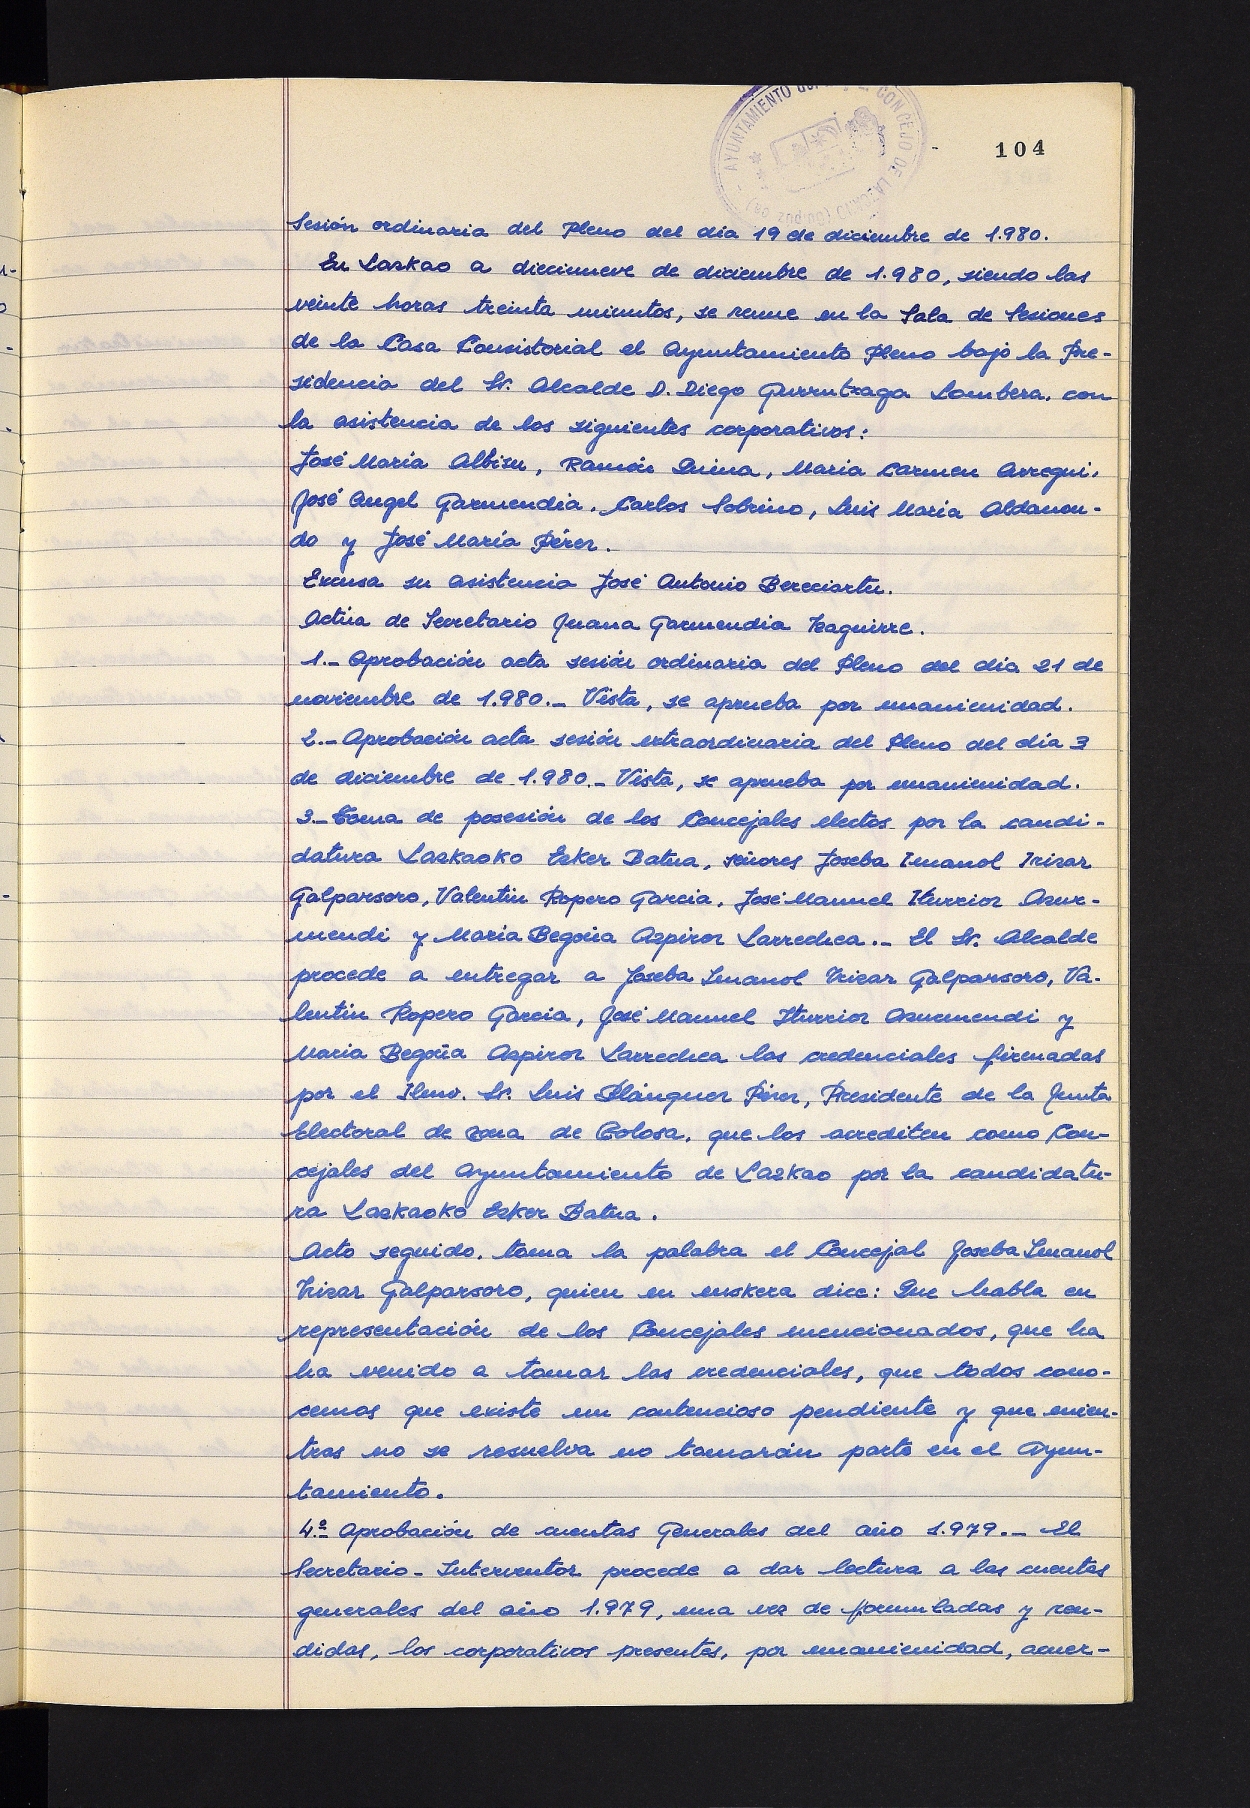 104
AYUNTAMIENTO CONCEJO DE LAZCANO (Guipúzcoa)
Sesión ordinaria del Pleno del día 19 de diciembre de 1.980.
En Lazkao a diecinueve de diciembre de 1.980, siendo las
veinte horas treinta minutos, se reune en la Sala de Sesiones
de la Casa Consistorial el Ayuntamiento Pleno bajo la Pre-
sidencia del Sr. Alcalde D. Diego Gurrutxaga Lombera, con
la asistencia de los siguientes corporativos:
José María Albisu, Ramón Imina, Maria Carmen Arregui,
José Angel Garmendia, Carlos Sobrino, Luis María Aldanon-
do y José María Pérez.
Excusa su asistencia José Antonio Bereciartu.
Actúa de Secretario Juana Garmendia Izaguirre.
1.- Aprobación acta sesión ordinaria del Pleno del día 21 de
noviembre de 1.980.- Vista, se aprueba por unanimidad.
2.- Aprobación acta sesión extraordinaria del Pleno del día 3
de diciembre de 1.980.- Vista, se aprueba por unanimidad.
3.- Toma de posesión de los Concejales electos por la candi-
datura Lazkaoko Ezker Batua, señores Joseba Imanol Irizar
Galparsoro, Valentin Ropero Garcia, José Manuel Iturrioz Azur-
mendi y Maria Begoña Azpiroz Larrechea.- El Sr. Alcalde
procede a entregar a Joseba Imanol Irizar Galparsoro, Va-
lentin Ropero Garcia, José Manuel Iturrioz Azurmendi y
Maria Begoña Azpiroz Larrechea las credenciales firmadas
por el Ilmo. Sr. Luis Blánquez Pérez, Presidente de la Junta
Electoral de zona de Tolosa, que los acrediten como Con-
cejales del Ayuntamiento de Lazkao por la candidatu-
ra Lazkaoko Ezker Batua.
Acto seguido, toma la palabra el Concejal Joseba Imanol
Irizar Galparsoro, quien en euskera dice: Que habla en
representación de los Concejales mencionados, que ha
ha venido a tomar las credenciales, que todos cono-
cemos que existe un contencioso pendiente y que mien-
tras no se resuelva no tomarán parte en el Ayun-
tamiento.
4.º Aprobación de cuentas Generales del año 1.979.- El
Secretario-Interventor procede a dar lectura a las cuentas
generales del año 1.979, una vez de formuladas y ren-
didas, los corporativos presentes, por unanimidad, acuer-